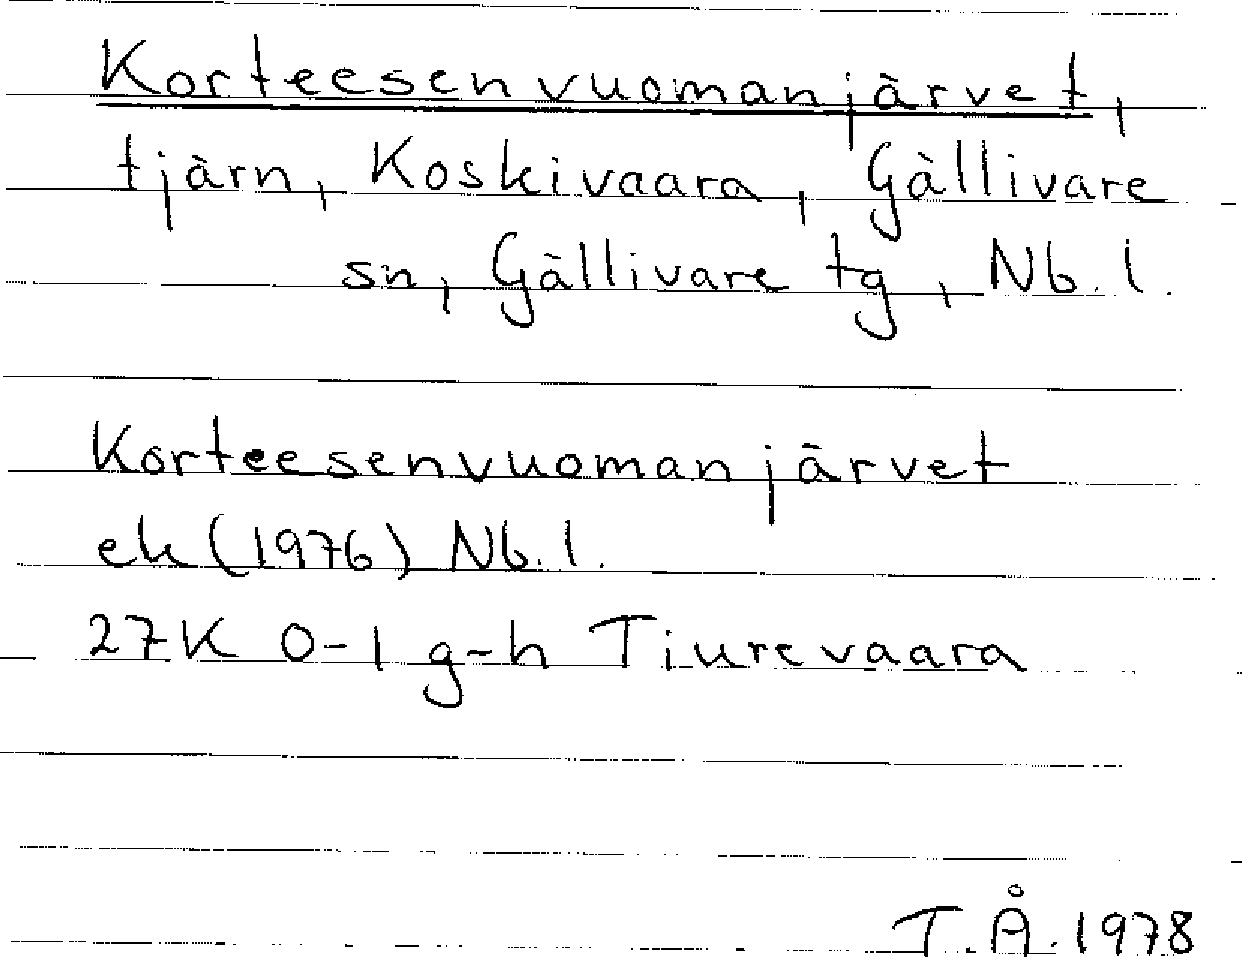 Korteesenvuomanjärvet,
tjärn, Koskivaara, Gällivare
sn, Gällivare tg, Nb. l.
Korteesenvuomanjärvet
ek (1976) Nb. l.
27K 0-1 g-h Tiurevaara
T.Å. 1978